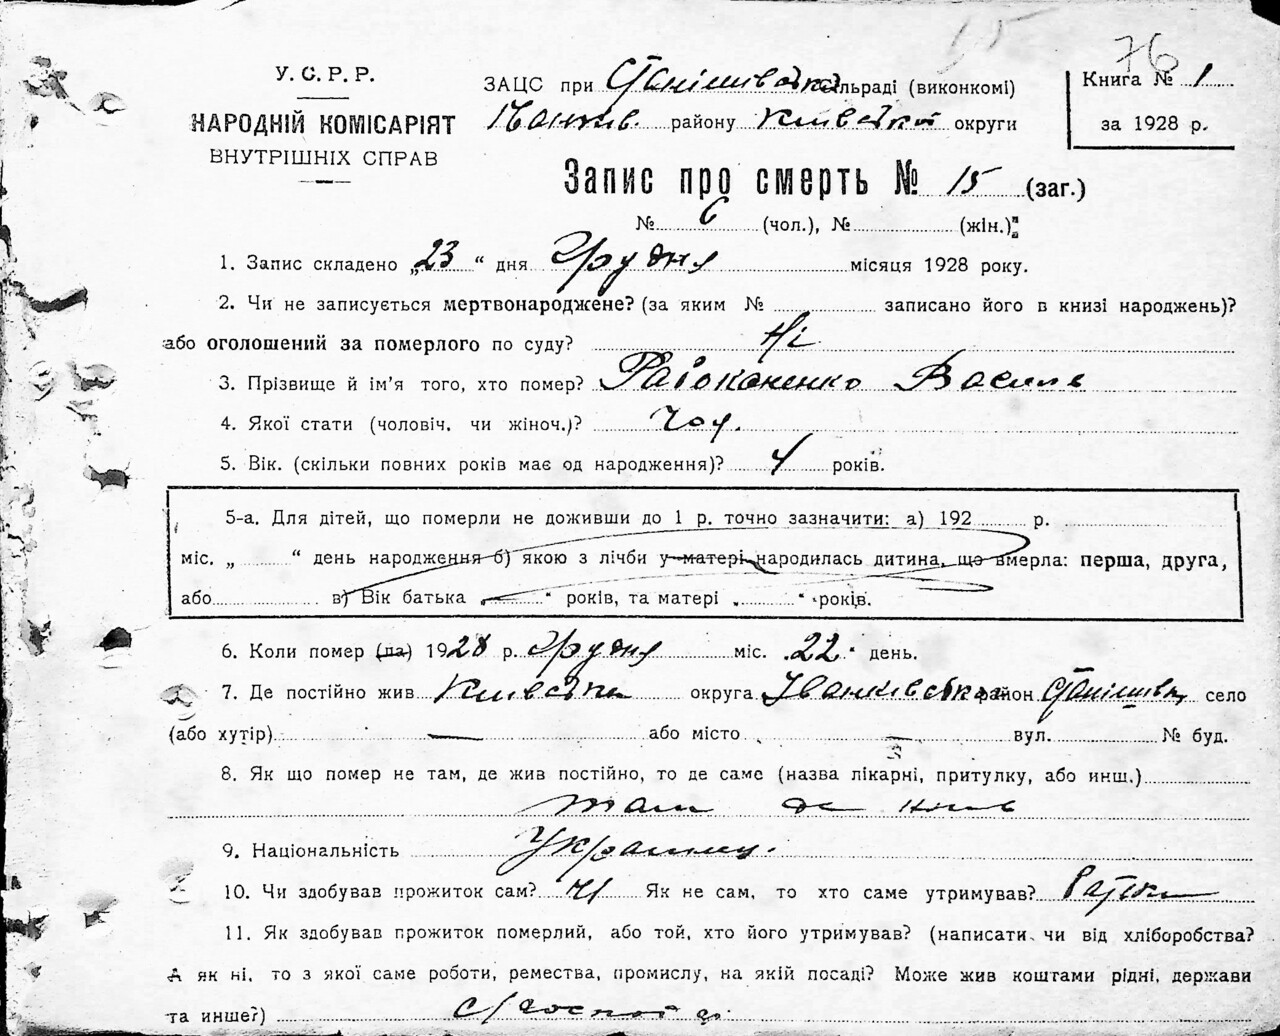 76
У. С. Р. Р.
НАРОДНІЙ КОМІСАРІЯТ
ВНУТРІШНІХ СПРАВ
ЗАЦС при Станішивська сільраді (виконкомі)
району Київської округи
Книга № 1
за 1928 р.
Запис про смерть № 15 (заг.)
№ 6 (чол.), № (жін.)
1. Запис складено „23“ дня Грудня місяця 1928 року.
2. Чи не записується мертвонароджене? (за яким № записано його в книзі народжень)?
або оголошений за померлого по суду? Ні
3. Прізвище й ім'я того, хто помер? Василь
4. Якої стати (чоловіч. чи жіноч.)? Чол.
5. Вік. (скільки повних років має од народження)? 4 років.
5-а. Для дітей, що померли не доживши до 1 р. точно зазначити: а) 192 р.
міс. „ “ день народження б) якою з лічби у матері народилась дитина, що вмерла: перша, друга,
або в) Вік батька „ “ років, та матері „ “ років.
6. Коли помер (ла) 1928 р. Грудня міс. 22 день.
7. Де постійно жив Київська округа Іванківська район село
(або хутір) — або місто вул. № буд.
8. Як що помер не там, де жив постійно, то де саме (назва лікарні, притулку, або инш.)
там де жив
9. Національність Українец.
10. Чи здобував прожиток сам? Ні Як не сам, то хто саме утримував? Батьки
11. Як здобував прожиток померлий, або той, хто його утримував? (написати чи від хліборобства?
А як ні, то з якої саме роботи, ремества, промислу, на якій посаді? Може жив коштами рідні, держави
та инше?)